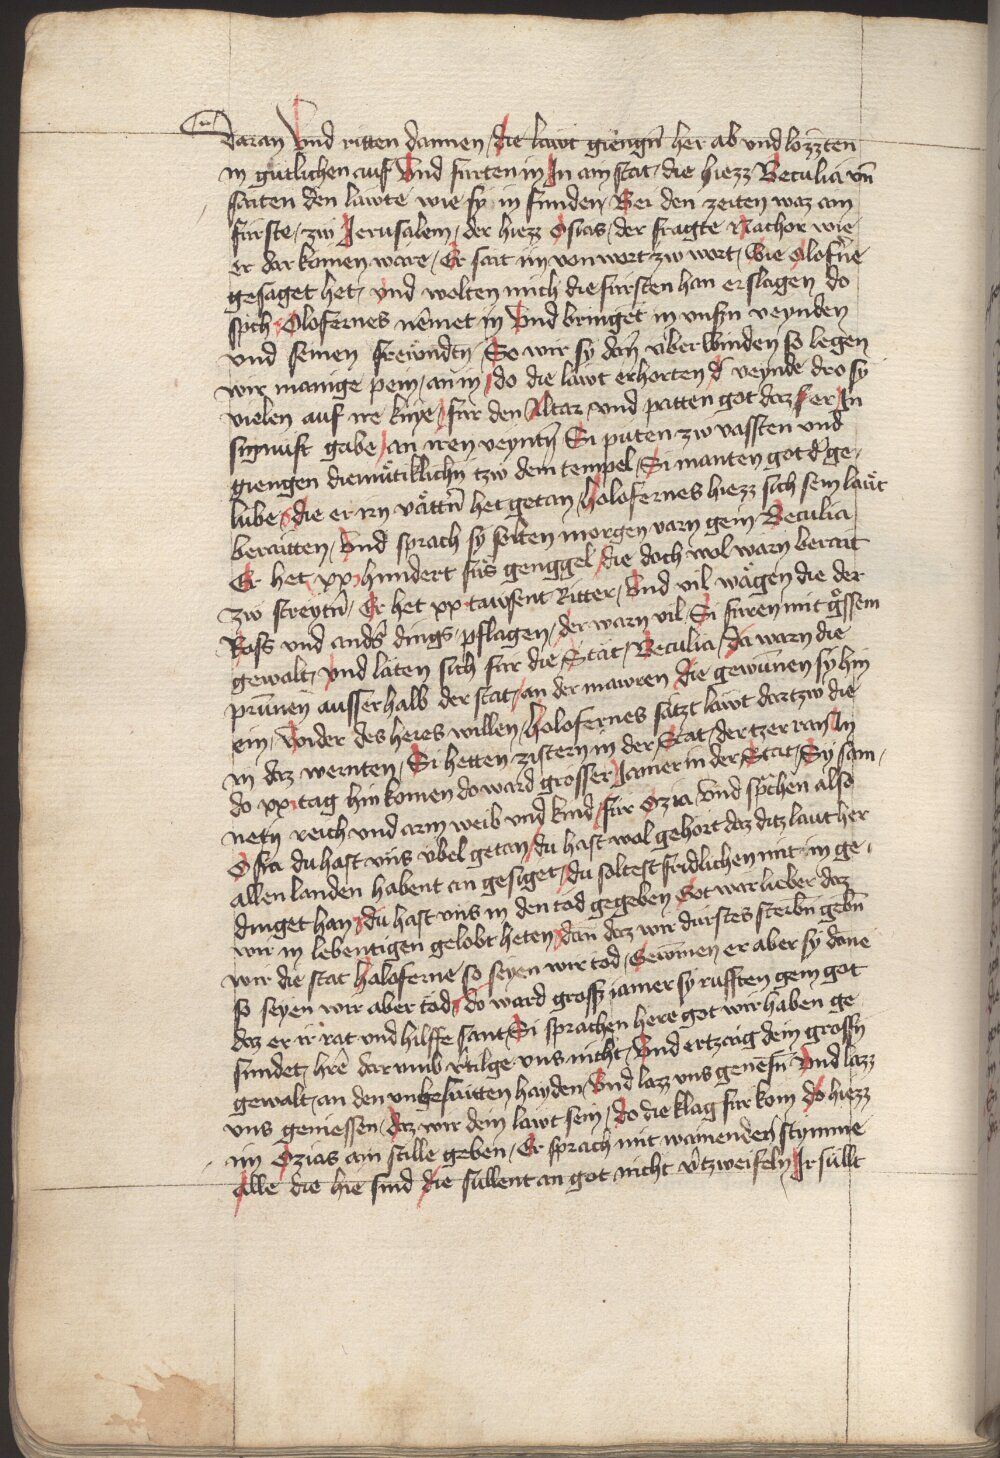 daran Vnd ritten dannen / die lawt giengn̄ her ab vnd lozzten
in gütlichen auf Vnd furten in In ain stat / die hiezz Beculia vn̄
saiten den lawte wie sy in funden / Bei den zeiten waz ain
fürste / zw Jerusalem / der hiezz Osias / der fragte Nachor wie
er dar komen ware / Er sait im von wort zw wort / wie Olofne
gesaget het / vnd wolten mich die fürsten han erslagen do
sprch Olofernes nemet in Vnd bringet in vnsn veynden
vnd seinen frewndtn̄ / So wir sy dan̄ vber winden so legen
wir manige pein / an in / do die lawt erhorten d' veynde dro sy
vielen auf ire knye / für den Altar / vnd patten got daz er In
signuft gabe / an iren veyntn̄ Si puten zw vassten vnd
giengen diemütiklichn̄ tzw dem tempel / Si manten got d' ge /
lube / die er irn vättn̄ het getan / Holofernes hiezz sich sein läut
beraitten / Vnd sprach sy solten morgen varn gein Beculia
Er het xx hundert fus genggel / die doch wol warn berait
zw streytn̄ / Er het xx tawsent Ritter / Vnd vil wägen die der
Ross vnd anders dings / pflagen / der warn vil / Si füren mit grössem
gewalt / vnd laten sich für die Stat / Beculia / da warn die
prünnen ausserhalb der stat / an der mawren die gewunnen sy hin
ein / wider des heres willen / Holofernes satzt lawt dartzw die
in daz wernten / Si hetten zistern in der Stat / der tzer ran In
do xx tag hin komen do ward grosser Jamer in der Stat / Sy sam /
netn reich vnd arm weib vnd kind / für Ozia / vnd sprachen also
Osia du hast vns vbel getan / du hast wol gehort daz ditz laut her
allen landen habent an gesiget / du soltest fridlichen mit in ge /
dinget han / du hast vns in den tod gegeben / Got war lieber daz
wir in lebentigen gelobt heten / dan̄ daz wir durstes sterbn̄ gebn̄
wir die stat Haloferne / so seyen wir tod / Gewinnen er aber sy dane
so seyen wir aber tod / do ward grossz iamer sy rufften gein got
daz er ir rat vnd hilffe sant / Si sprachen here got wir haben ge
sundet / hrē dar vmb v'tilge vns nicht / Vnd ertzaig dein grossn
gewalt / an den vnbesnitten hayden / Vnd lazz vns genesn̄ vnd lazz
vns geniessen / daz wir dein lawt sein / do die klag für kom do hiezz
im Ozias ain stille geben / Er sprach mit wainender stymme
Alle die hie sind / die sullent an got nicht v'tzweifeln / Ir sullt